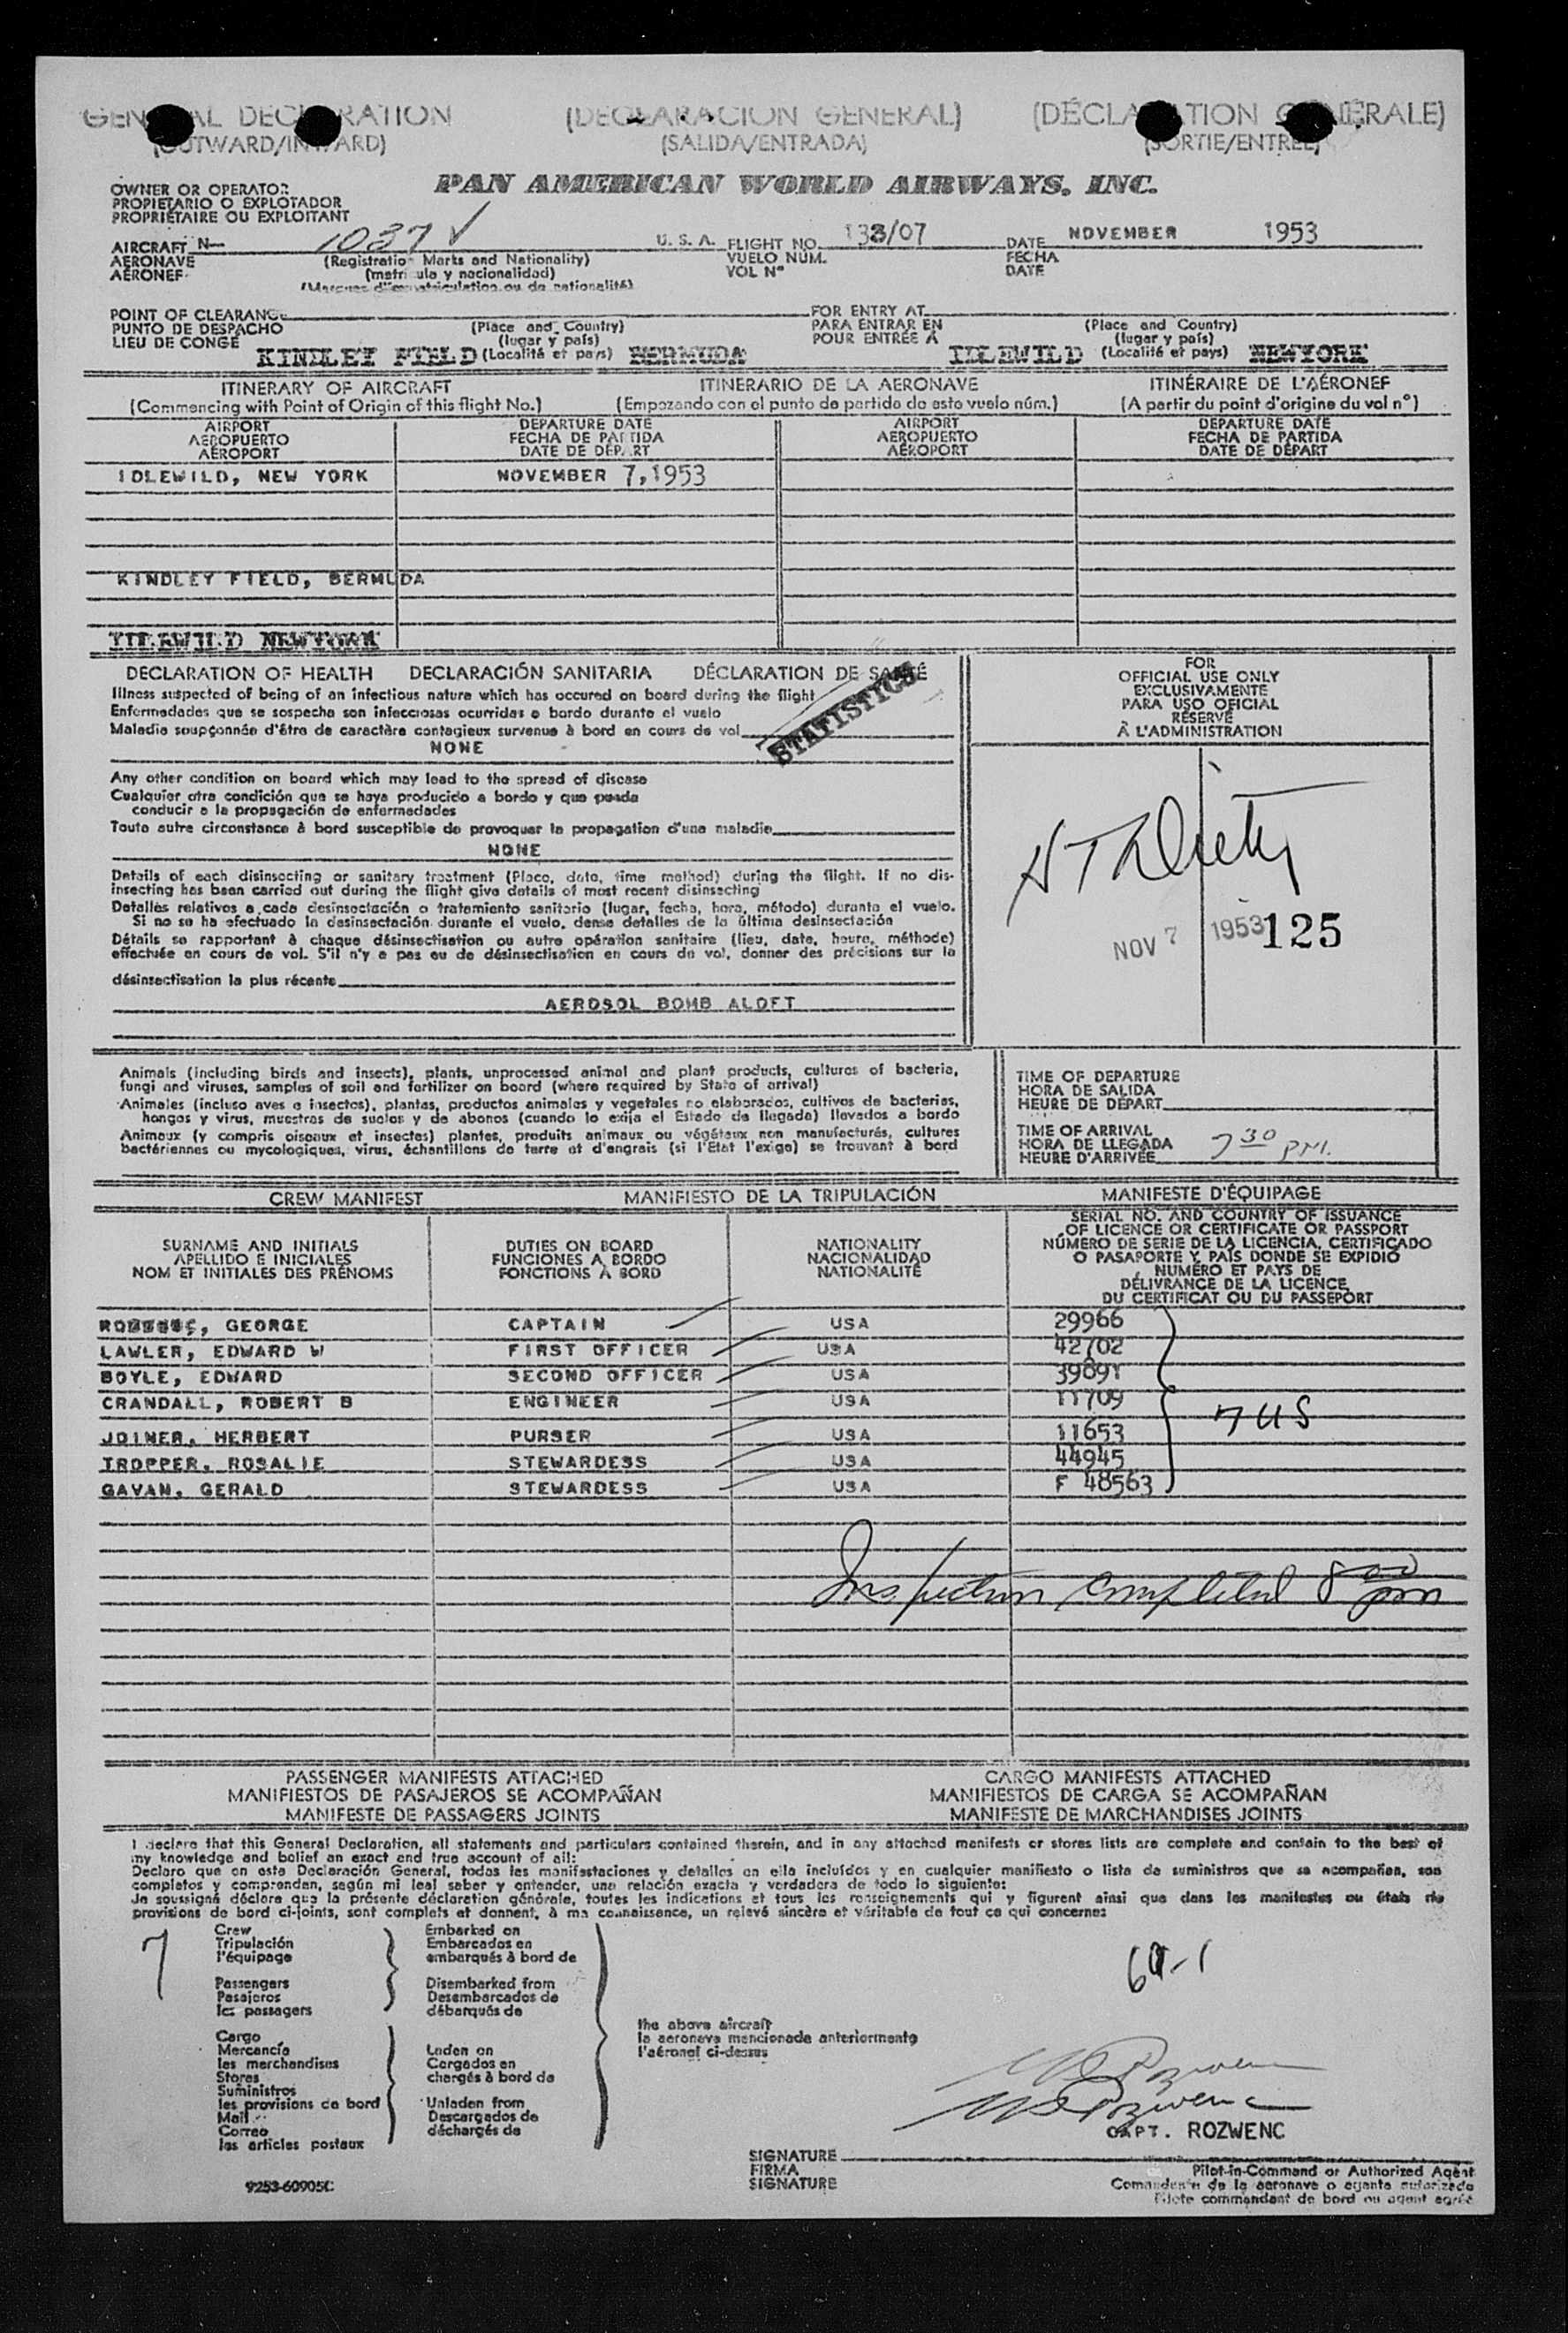 GENERAL DECLARATION (DECLARACION GENERAL) (DÉCLARATION GÉNÉRALE)
(OUTWARD/INWARD) (SALIDA/ENTRADA) (SORTIE/ENTREE)
OWNER OR OPERATOR PAN AMERICAN WORLD AIRWAYS, INC.
PROPIETARIO O EXPLOTADOR
PROPRIÉTAIRE OU EXPLOITANT
AIRCRAFT N- 1037 V U. S. A. FLIGHT NO. 133/07 DATE NOVEMBER 1953
AERONAVE (Registration Marks and Nationality) VUELO NÚM. FECHA
AÉRONEF (matricula y nacionalidad) VOL Nº DATE
(Marques d'immatriculation ou de nationalité)
POINT OF CLEARANCE FOR ENTRY AT
PUNTO DE DESPACHO (Place and Country) PARA ENTRAR EN (Place and Country)
LIEU DE CONGÉ (lugar y país) POUR ENTRÉE A (lugar y país)
KINDLEY FIELD (Localité et pays) BERMUDA IDLEWILD (Localité et pays) NEWYORK
ITINERARY OF AIRCRAFT ITINERARIO DE LA AERONAVE ITINÉRAIRE DE L'AÉRONEF
(Commencing with Point of Origin of this flight No.) (Empezando con el punto de partida de este vuelo núm.) (A partir du point d'origine du vol nº)
AIRPORT DEPARTURE DATE AIRPORT DEPARTURE DATE
AEROPUERTO FECHA DE PARTIDA AEROPUERTO FECHA DE PARTIDA
AÉROPORT DATE DE DÉPART AÉROPORT DATE DE DÉPART
IDLEWILD, NEW YORK NOVEMBER 7,1953
KINDLEY FIELD, BERMUDA
IDLEWILD NEWYORK
DECLARATION OF HEALTH DECLARACIÓN SANITARIA DÉCLARATION DE SANTÉ
Illness suspected of being of an infectious nature which has occured on board during the flight
Enfermedades que se sospecha son infecciosas ocurridas a bordo durante el vuelo
Maladie soupçonnée d'être de caractère contagieux survenue à bord en cours de vol
STATISTICS
NONE
Any other condition on board which may lead to the spread of disease
Cualquier otra condición que se haya producido a bordo y que pueda
conducir a la propagación de enfermedades
Toute autre circonstance à bord susceptible de provoquer la propagation d'une maladie
NONE
Details of each disinsecting or sanitary treatment (Place, date, time method) during the flight. If no dis-
insecting has been carried out during the flight give details of most recent disinsecting
Detalles relativos a cada desinsectación o tratamiento sanitario (lugar, fecha, hora, método) durante el vuelo.
Si no se ha efectuado la desinsectación durante el vuelo, dense detalles de la última desinsectación
Détails se rapportant à chaque désinsectisation ou autre opération sanitaire (lieu, date, heure, méthode)
effectuée en cours de vol. S'il n'y a pas eu de désinsectisation en cours de vol, donner des précisions sur la
désinsectisation la plus récente
AEROSOL BOMB ALOFT
FOR
OFFICIAL USE ONLY
EXCLUSIVAMENTE
PARA USO OFICIAL
RÉSERVÉ
À L'ADMINISTRATION
NOV 7 1953 125
Animals (including birds and insects), plants, unprocessed animal and plant products, cultures of bacteria,
fungi and viruses, samples of soil and fertilizer on board (where required by State of arrival)
Animales (incluso aves e insectos), plantas, productos animales y vegetales no elaborados, cultivos de bacterias,
hongos y virus, muestras de suelos y de abonos (cuando lo exija el Estado de llegada) llevados a bordo
Animaux (y compris oiseaux et insectes) plantes, produits animaux ou végétaux non manufacturés, cultures
bactériennes ou mycologiques, virus, échantillons de terre et d'engrais (si l'Etat l'exige) se trouvant à bord
TIME OF DEPARTURE
HORA DE SALIDA
HEURE DE DÉPART
TIME OF ARRIVAL
HORA DE LLEGADA 7 30 PM.
HEURE D'ARRIVÉE
CREW MANIFEST MANIFIESTO DE LA TRIPULACIÓN MANIFESTE D'ÉQUIPAGE
SURNAME AND INITIALS DUTIES ON BOARD NATIONALITY
APELLIDO E INICIALES FUNCIONES A BORDO NACIONALIDAD
NOM ET INITIALES DES PRÉNOMS FONCTIONS À BORD NATIONALITÉ
SERIAL NO. AND COUNTRY OF ISSUANCE
OF LICENCE OR CERTIFICATE OR PASSPORT
NÚMERO DE SERIE DE LA LICENCIA, CERTIFICADO
O PASAPORTE Y PAÍS DONDE SE EXPIDIÓ
NUMÉRO ET PAYS DE
DÉLIVRANCE DE LA LICENCE,
DU CERTIFICAT OU DU PASSEPORT
GEORGE CAPTAIN USA 29966
LAWLER, EDWARD W FIRST OFFICER USA 42702
BOYLE, EDWARD SECOND OFFICER USA 39891
CRANDALL, ROBERT B ENGINEER USA 11709
7 US
JOINER, HERBERT PURSER USA 11653
TROPPER, ROSALIE STEWARDESS USA 44945
GAVAN, GERALD STEWARDESS USA F 48563
Inspection completed 8 00 pm
PASSENGER MANIFESTS ATTACHED CARGO MANIFESTS ATTACHED
MANIFIESTOS DE PASAJEROS SE ACOMPAÑAN MANIFIESTOS DE CARGA SE ACOMPAÑAN
MANIFESTE DE PASSAGERS JOINTS MANIFESTE DE MARCHANDISES JOINTS
I declare that this General Declaration, all statements and particulars contained therein, and in any attached manifests or stores lists are complete and contain to the best of
my knowledge and belief an exact and true account of all:
Declaro que en esta Declaración General, todas las manifestaciones y detalles en ella incluídos y en cualquier manifiesto o lista de suministros que se acompañen, son
completos y comprenden, según mi leal saber y entender, una relación exacta y verdadera de todo lo siguiente:
Je soussigné déclare que la présente déclaration générale, toutes les indications et tous les renseignements qui y figurent ainsi que dans les manifestes ou états de
provisions de bord ci-joints, sont complets et donnent, à ma connaissance, un relevé sincère et véritable de tout ce qui concerne:
7
Crew Embarked on
Tripulación Embarcados en
l'équipage embarqués à bord de
Passengers Disembarked from
Pasajeros Desembarcados de
les passagers débarqués de
the above aircraft
la aeronave mencionada anteriormente
l'aéronef ci-dessus
Cargo
Mercancía Laden on
les marchandises Cargados en
Stores chargés à bord de
Suministros
les provisions de bord Unladen from
Mail Descargados de
Correo déchargés de
les articles postaux
CAPT. ROZWENC
SIGNATURE
FIRMA Pilot-in-Command or Authorized Agent
SIGNATURE Comandante de la aeronave o agente autorizado
Pilote commandant de bord ou agent agréé
9253-60905C